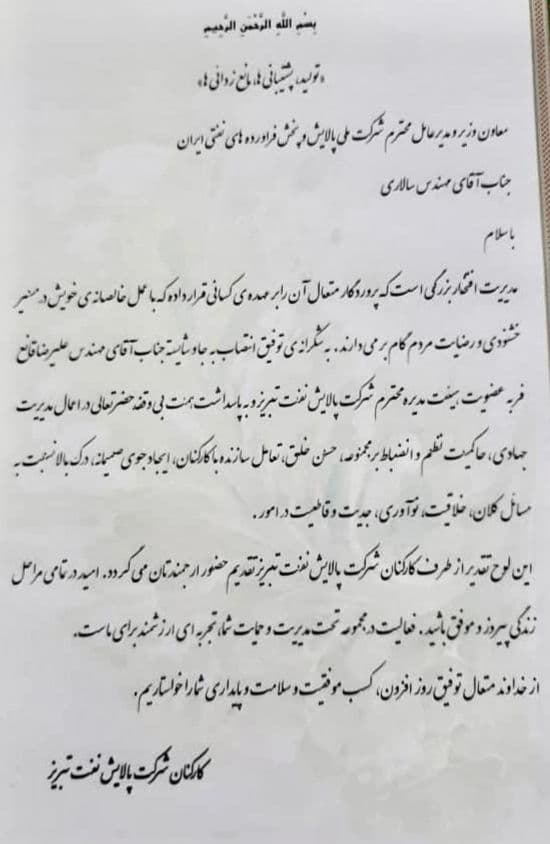 بِسْمِ اللَّهِ الرَّحْمَنِ الرَّحِيمِ
«تولید، پشتیبانی ها، مانع زدائی ها»
معاون وزیر و مدیرعامل محترم شرکت ملی پالایش و پخش فراورده های نفتی ایران
جناب آقای مهندس سالاری
با سلام
مدیریت افتخار بزرگی است که پروردگار متعال آن را بر عهده ی کسانی قرار داده که با عمل خالصانه ی خویش در مسیر
خشنودی و رضایت مردم گام برمی دارند. به شکرانه ی توفیق انتصاب به جا و شایسته جناب آقای مهندس علیرضا قانع
فر به عضویت هیئت مدیره محترم شرکت پالایش نفت تبریز و به پاسداشت همت بی وقفه حضرتعالی در اعمال مدیریت
جهادی، حاکمیت نظم و انضباط بر مجموعه، حسن خلق، تعامل سازنده با کارکنان، ایجاد جوی صمیمانه، درک بالا نسبت به
مسائل کلان، خلاقیت، نوآوری، جدیت و قاطعیت در امور.
این لوح تقدیر از طرف کارکنان شرکت پالایش نفت تبریز تقدیم حضور ارجمندتان می گردد. امید در تمامی مراحل
زندگی پیروز و موفق باشید. فعالیت در مجموعه تحت مدیریت و حمایت شما، تجربه ای ارزشمند برای ماست.
از خداوند متعال توفیق روز افزون، کسب موفقیت و سلامت و پایداری شما را خواستاریم.
کارکنان شرکت پالایش نفت تبریز